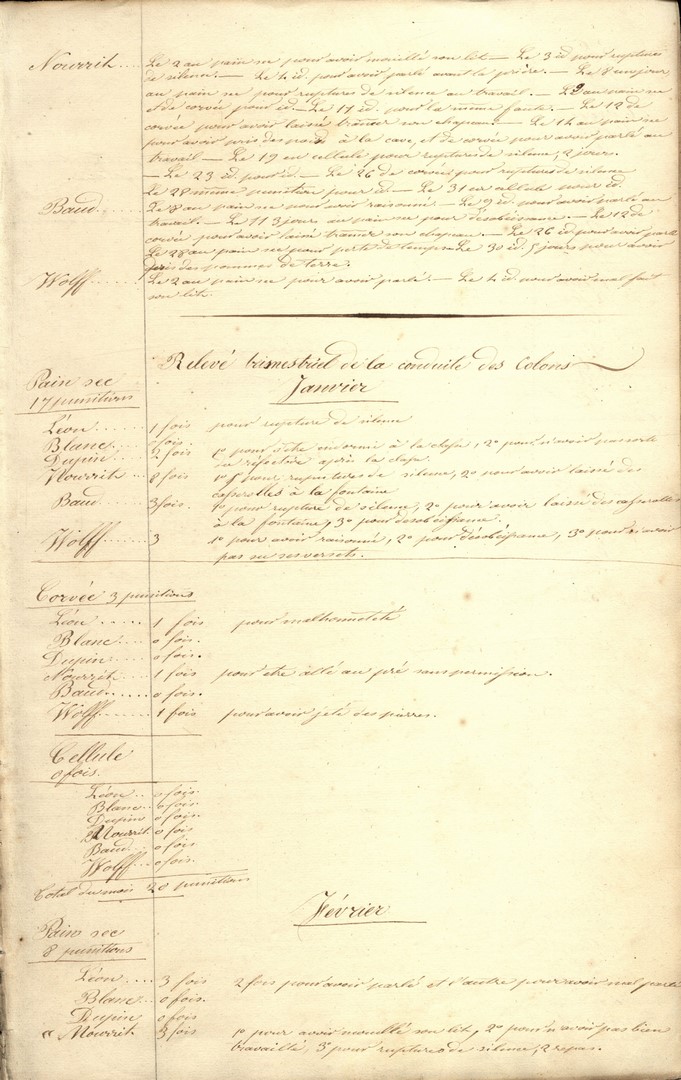 Nourrit.... Le 2 au pain sec pour avoir mouillé son lit — Le 3 id pour ruptures
de silence. — Le 4 id. pour avoir parlé avant la prière. — Le 8 un jour
au pain sec pour ruptures de silence au travail. — Le 9 au pain sec
et de corvée pour id — Le 11 id. pour la même faute. — Le 12 de
corvée pour avoir laissé traîner son chapeau — Le 14 au pain sec
pour avoir pris des à la cave, et de corvée pour avoir parlé au
travail — Le 19 en cellule pour ruptures de silence, 2 jours.
— Le 23 id pour id. — Le 26 de corvée pour ruptures de silence
Le 28 même punition pour id — Le 31 en cellule pour id.
Baud...... Le 8 au pain sec pour avoir raisonné — Le 9 id. pour avoir parlé au
travail. — Le 11 3 jours au pain sec pour désobéissance. — Le 12 de
corvée pour avoir laissé traîner son chapeau. — Le 26 id pour avoir parlé
Le 28 au pain sec pour perte de temps. Le 30 id. 5 jours pour avoir
pris des pommes de terre.
Wolff...... Le 2 au pain sec pour avoir parlé. — Le 4 id. pour avoir mal fait
son lit.
Relevé trimestriel de la conduite des Colons
Janvier
Pain sec
17 punitions
Léon..... 1 fois pour rupture de silence
Blanc.... 0 fois.
Dupin.... 2 fois 1° pour s'être endormi à la classe, 2° pour n'avoir pas sorti
du réfectoire après la classe.
Nourrit... 8 fois 1° pour ruptures de silence, 2° pour avoir laissé des
casserolles à la fontaine
Baud.... 3 fois. 1° pour rupture de silence, 2° pour avoir laissé des casserolles
à la fontaine, 3° pour désobéissance.
Wolff..... 3 1° pour avoir raisonné, 2° pour désobéissance, 3° pour n'avoir
pas su ses versets.
Corvée 3 punitions
Léon..... 1 fois pour malhonnêteté
Blanc.... 0 fois.
Dupin.... 0 fois.
Nourrit.... 1 fois pour être allé au pré sans permission.
Baud...... 0 fois.
Wolff...... 1 fois pour avoir jeté des pierres.
Cellule
0 fois.
Léon... 0 fois.
Blanc.. 0 fois.
Dupin 0 fois.
Nourrit 0 fois
Baud.. 0 fois.
Wolff... 0 fois.
Total du mois 20 punitions
Février
Pain sec
8 punitions
Léon.... 3 fois 2 fois pour avoir parlé et l'autre pour avoir mal parlé
Blanc... 0 fois.
Dupin... 0 fois
Nourrit... 3 fois 1° pour avoir mouillé son lit, 2° pour n'avoir pas bien
travaillé, 3° pour ruptures de silence, 2 repas.